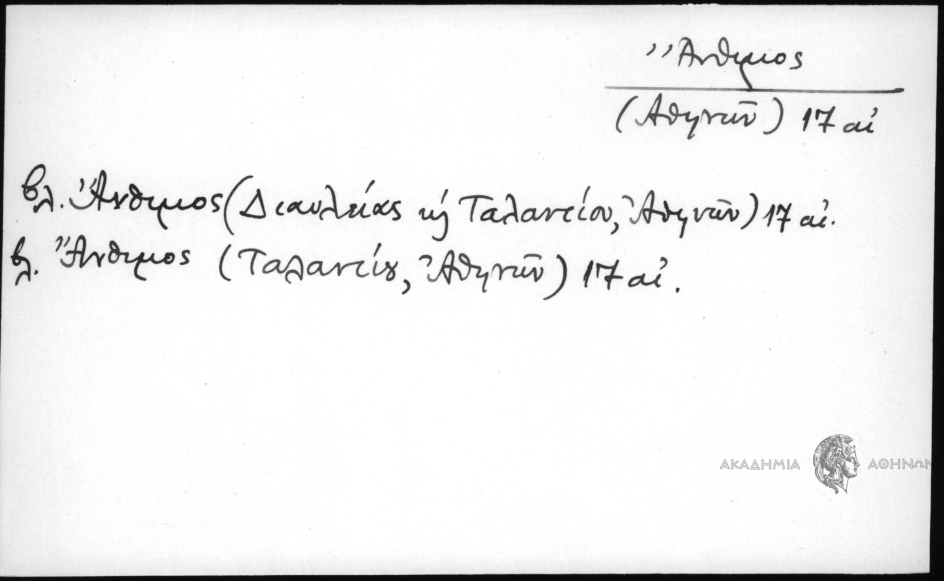 Ἄνθιμος
(Ἀθηνῶν) 17 αἰ
βλ. Ἄνθιμος (Διαυλείας κὴ Ταλαντίου, Ἀθηνῶν) 17 αἰ.
βλ. Ἄνθιμος (Ταλαντίου, Ἀθηνῶν) 17 αἰ.
ΑΚΑΔΗΜΙΑ ΑΘΗΝΩΝ